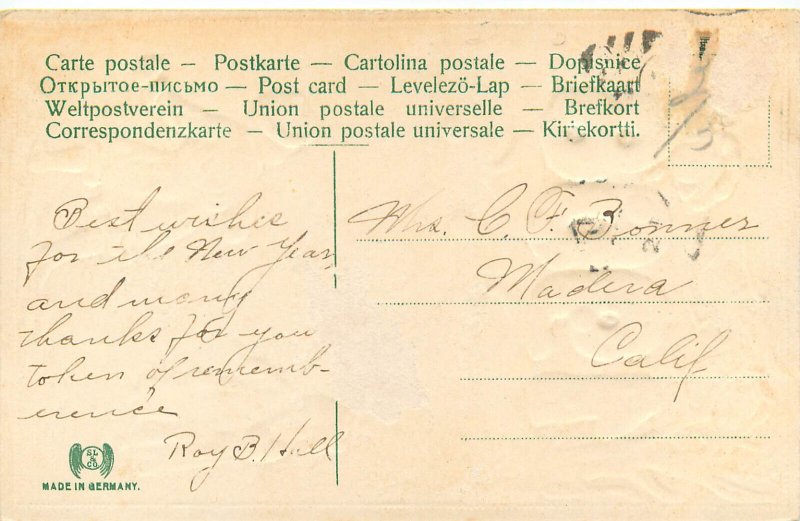 Carte postale — Postkarte — Cartolina postale — Dopisnice
Открытое-письмо — Post card — Levelező-Lap — Briefkaart
Weltpostverein — Union postale universelle — Brefkort
Correspondenzkarte — Union postale universale — Kirjekortti.
Best wishes
for the New Year,
and many
thanks for you
token of rememb-
erence
Roy B. Hull
Mrs. C. F. Bonner
Madera
Calif
SL
&
CO
MADE IN GERMANY.